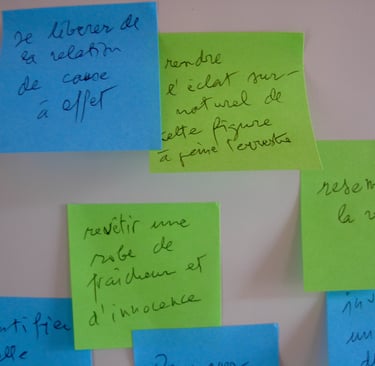 se libérer de
la relation
de cause
à effet
rendre
l'éclat sur-
naturel de
cette figure
à peine terrestre
revêtir une
robe de
fraîcheur et
d'innocence
la
un